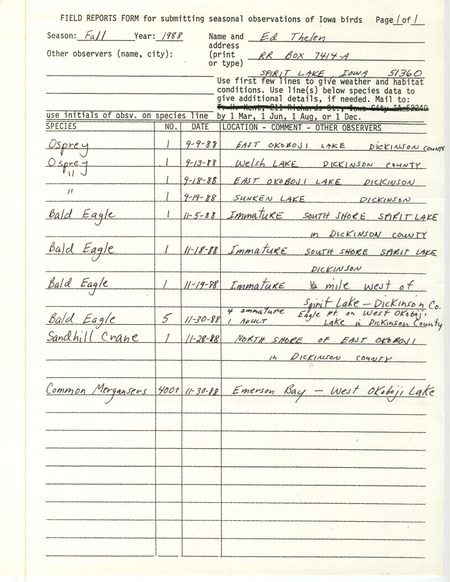 FIELD REPORTS FORM for submitting seasonal observations of Iowa birds Page 1 of 1
Season: Fall Year: 1988 Name and Ed Thelen
address
Other observers (name, city): (print RR BOX 7414-A
or type)
SPIRIT LAKE IOWA 51360
Use first few lines to give weather and habitat
conditions. Use line(s) below species data to
give additional details, if needed. Mail to:
T. H. Kent, 211 Richards St., Iowa City IA 52240
use initials of obsv. on species line by 1 Mar, 1 Jun, 1 Aug, or 1 Dec.
SPECIES NO. DATE LOCATION - COMMENT - OTHER OBSERVERS
Osprey 1 9-9-88 EAST OKOBOJI LAKE DICKINSON COUNTY
Osprey 1 9-13-88 Welsh LAKE DICKINSON COUNTY
" 1 9-18-88 EAST OKOBOJI LAKE DICKINSON
" 1 9-19-88 SUNKEN LAKE DICKINSON
Bald Eagle 1 11-5-88 Immature SOUTH SHORE SPIRIT LAKE
in DICKINSON COUNTY
Bald Eagle 1 11-18-88 Immature SOUTH SHORE SPIRIT LAKE
DICKINSON
Bald Eagle 1 11-19-88 Immature ½ mile west of
Spirit Lake - Dickinson Co.
Bald Eagle 5 11-30-88 4 Immature Eagle Pt on West Okoboji
1 ADULT Lake in Dickinson County
Sandhill Crane 1 11-28-88 NORTH SHORE OF EAST OKOBOJI
in DICKINSON COUNTY
Common Mergansers 400+ 11-30-88 Emerson Bay - West Okoboji Lake